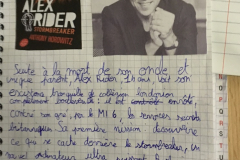 ALEX
RIDER
STORMBREAKER
ANTHONY HOROWITZ
Suite à la mort de son oncle et
unique parent Alex Rider, 14 ans voit son
tranquille de collégien londonien
complètement
contre son gré, par le MI6, les services secrets
britanniques. Sa première mission découvrir
ce qui se cache derrière le stormbreaker, un
ordinateur ultra